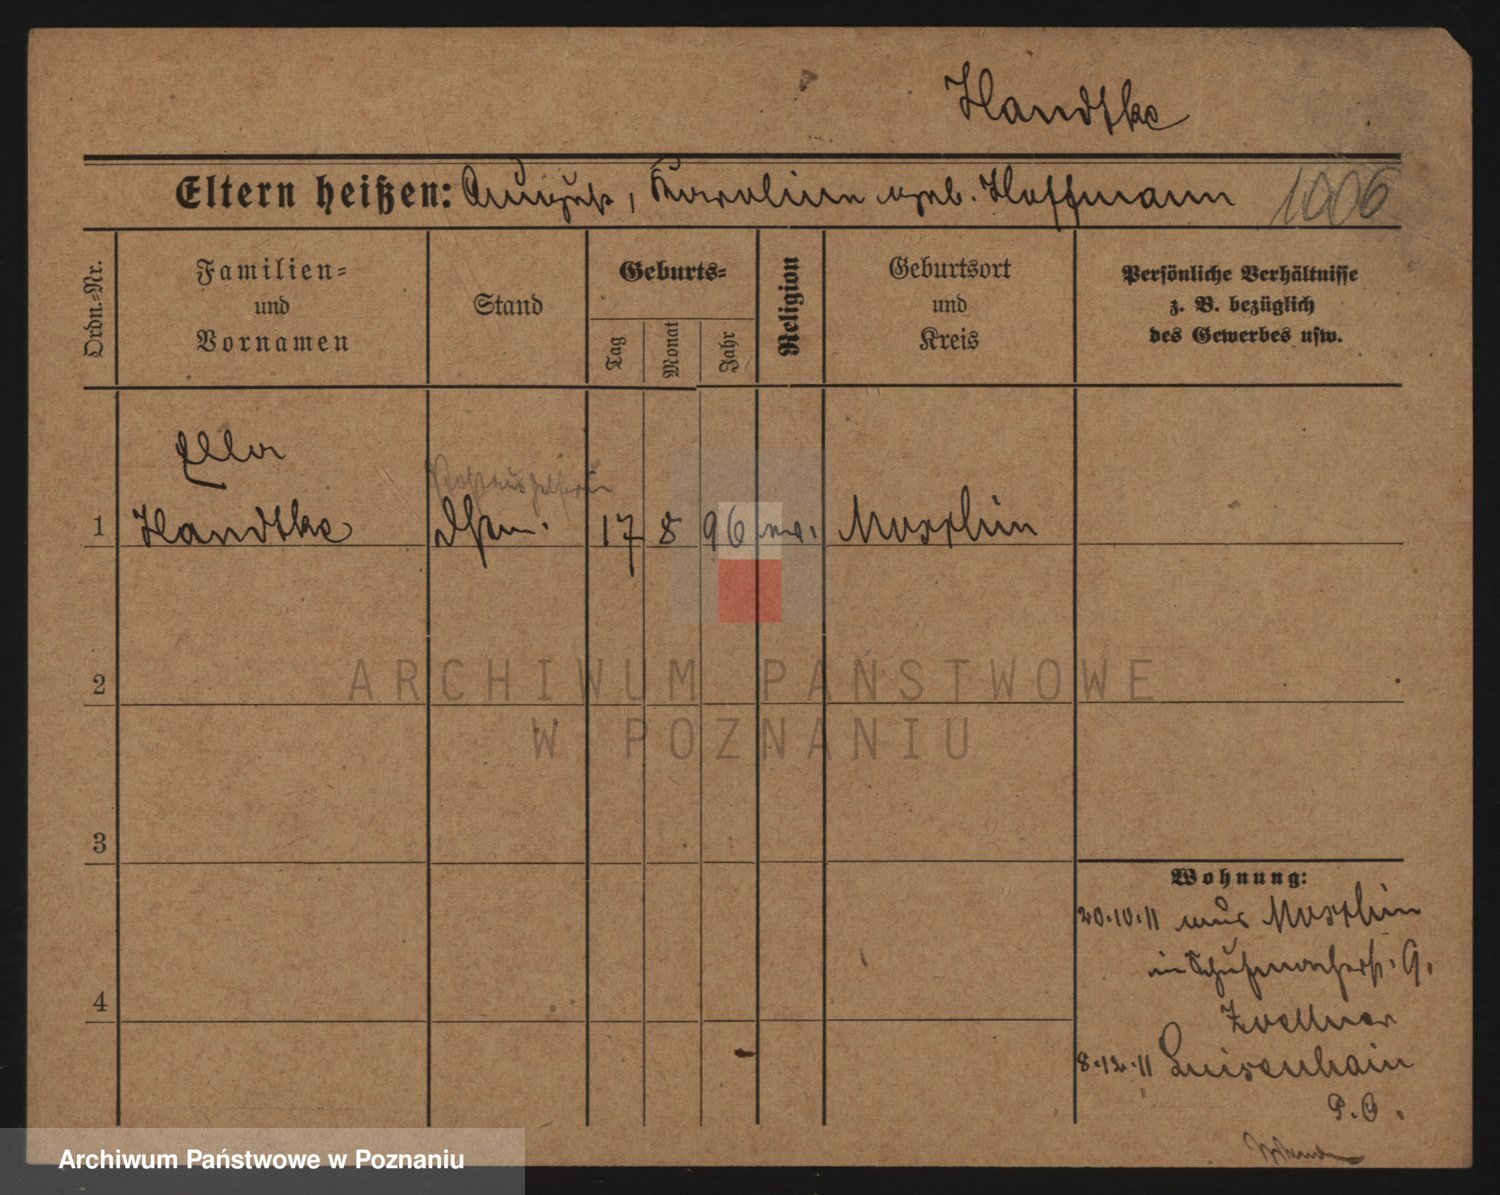 Handtke
Eltern heißen: August, Karoline geb. Hoffmann 1006
Ordn.-Nr.
Familien-
und
Vornamen
Stand
Geburts-
Tag
Monat
Jahr
Religion
Geburtsort
und
Kreis
Persönliche Verhältnisse
z. B. bezüglich
des Gewerbes usw.
Ella
1 Handtke 17 8 96 ev. Moschin
2
ARCHIWUM PAŃSTWOWE
W POZNANIU
3
Wohnung:
20.10.11 aus Moschin
in Schuhmacherstr. 9.
Zoellner
4
8.12.11 Luisenhain
P. O.
Archiwum Państwowe w Poznaniu